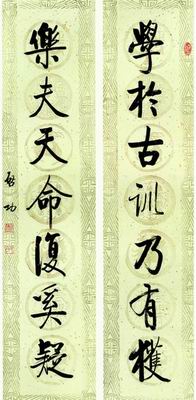 學於古訓乃有獲
樂夫天命復奚疑
啓功